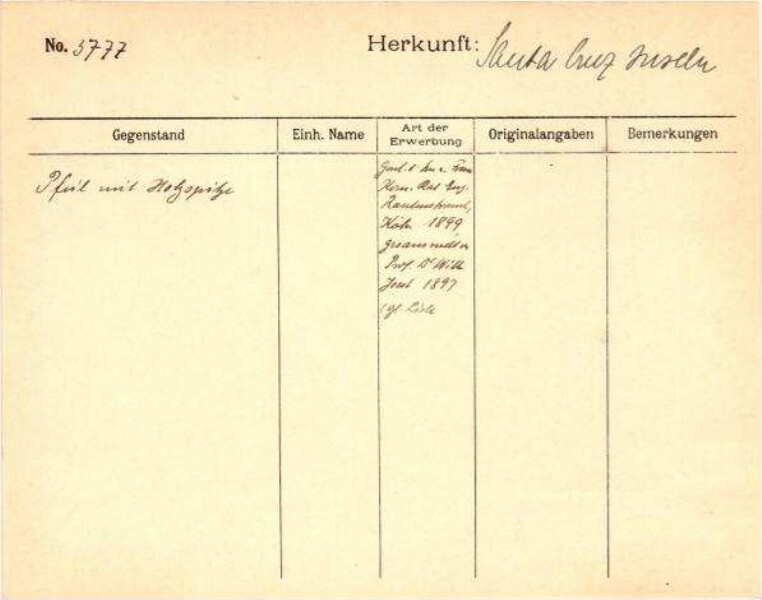 No. 3777
Herkunft: Santa Cruz Inseln
Gegenstand
Einh. Name
Art der Erwerbung
Originalangaben
Bemerkungen
Pfeil mit Holzspitze
Frau
Kom. Rat Eug.
Rautenstrauch,
Köln 1899
gesammelt v.
Prof. Dr Wilh
Joest 1897
Liste